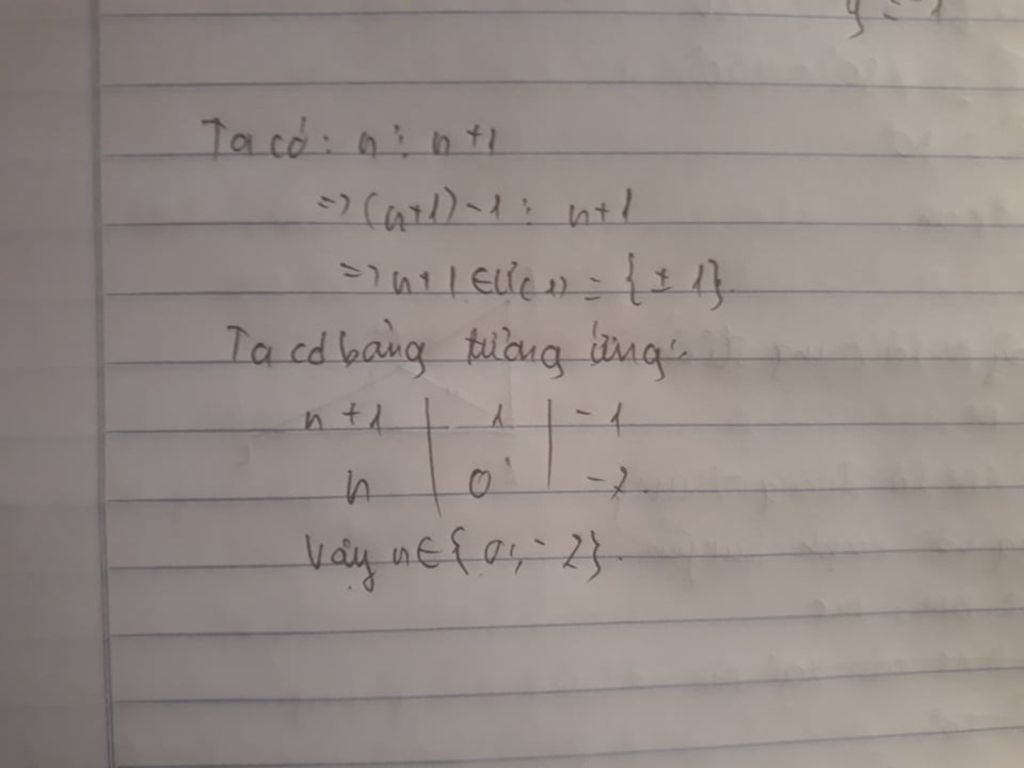 y = -1
Ta có: n ⋮ n+1
=> (n+1)-1 ⋮ n+1
=> n+1 ∈ Ư(1) = {± 1}.
Ta có bảng tương ứng:
n+1 | 1 | -1
n | 0 | -2
Vậy n ∈ {0; -2}.